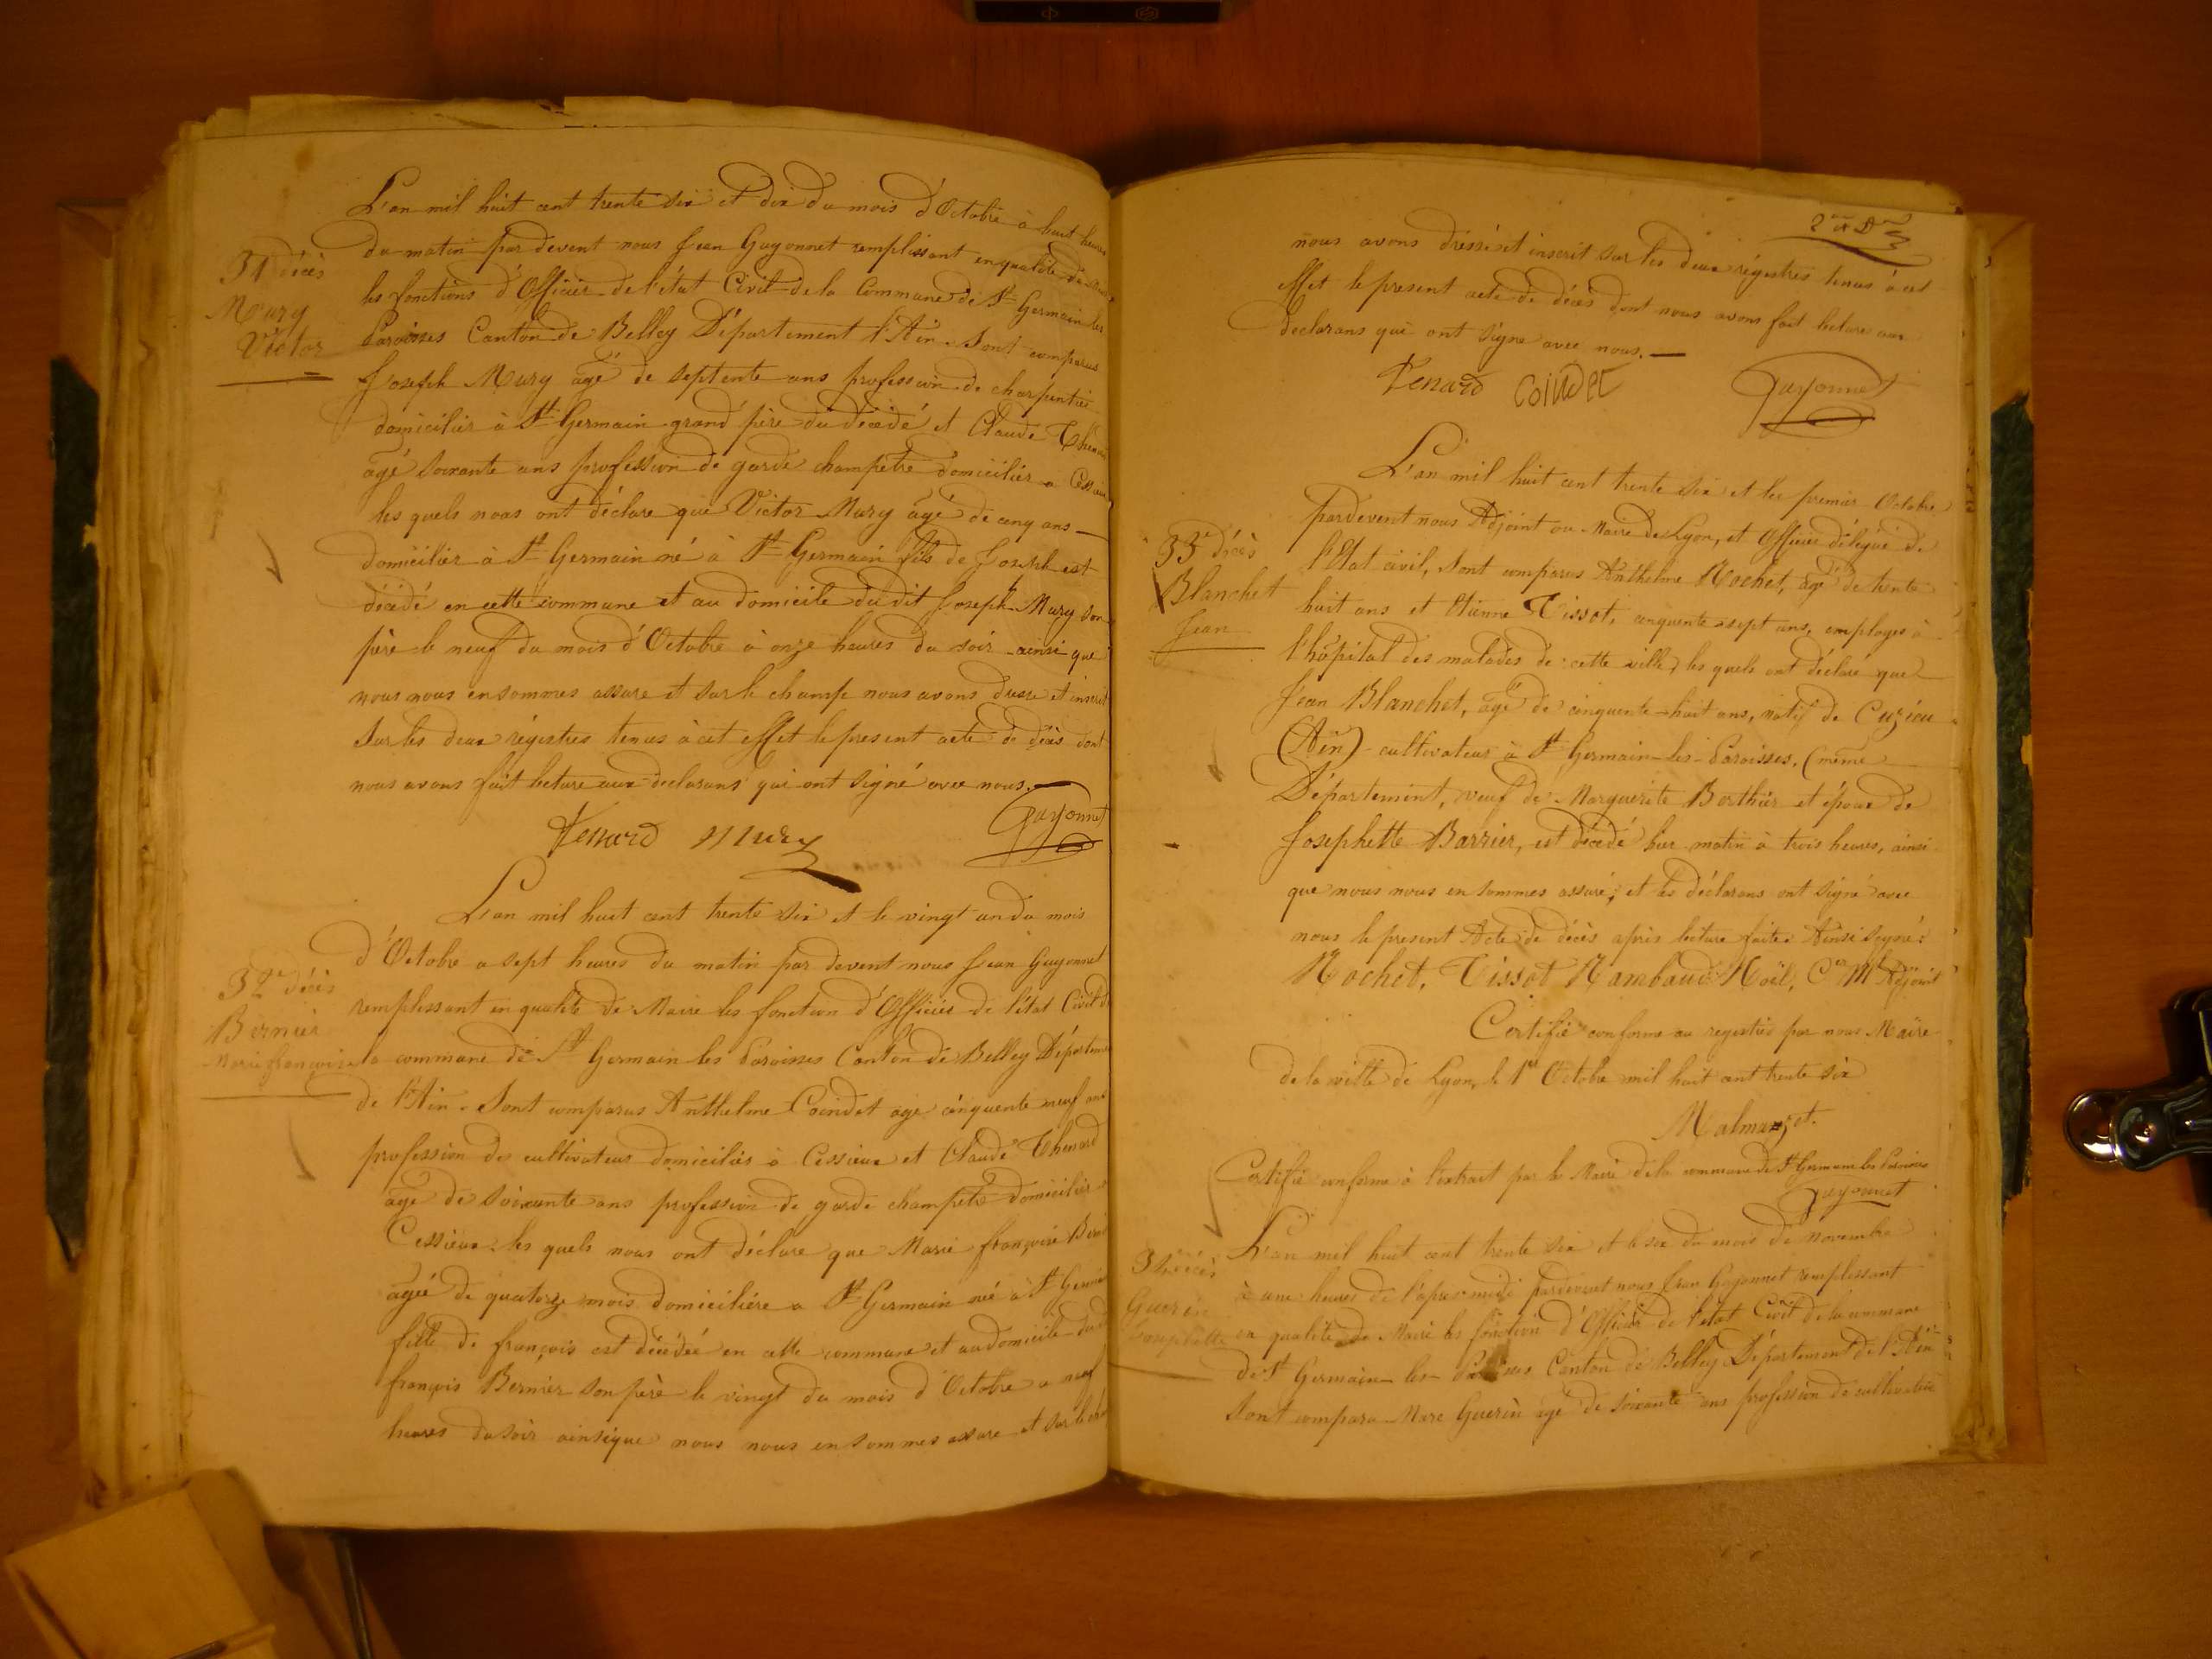 L'an mil huit cent trente six et dix du mois d'Octobre à huit heures
31 décès
Mury
Victor
du matin par devent nous Jean Guyonnet remplissant en qualité de
les fonctions d'Officier de l'état Civil de la Commune de St Germain les
Paroisses Canton de Belley Département l'Ain. Sont comparus
Joseph Mury agé de septente ans profession de charpentier
domicilier à St Germain grand père du décédé et Claude
agé soixante ans profession de garde champêtre domicilier a
les quels nous ont déclare que Victor Mury âgé de cinq ans
domicilier à St Germain né à St Germain fils de Joseph est
décédé en cette commune et au domicile du dit Joseph Mury son
père le neuf du mois d'Octobre à onze heures du soir ainsi que
nous nous en sommes assure et sur le champ nous avons dresse et inscrit
sur les deux régistres tenus à cet effet le present acte de décès dont
nous avons fait lecture aux declarans qui ont signé avec nous.
Tenard Mury Guyonnet
L'an mil huit cent trente six et le vingt un du mois
32e décès
Bernier
Marie françoise
d'Octobre a sept heures du matin par devent nous Jean Guyonnet
remplissant en qualité de Maire les fonction d'Officier de l'état Civil de
la commune de St Germain les Paroisses Canton de Belley
de l'Ain. Sont comparus Anthelme Coindet agé cinquente neuf ans
profession de cultivateur domicilier à Cessieux et Claude Thenard
agé de soixante ans profession de garde champêtre domicilier
Cessieux les quels nous ont déclare que Marie françoise
agée de quatorze mois domiciliére a St Germain né à St
fille de françois est décédée en cette commune et au domicile
françois Bernier son père le vingt du mois d'Octobre a neuf
heures du soir ainsi que nous nous en sommes assure et sur le
nous avons dressé et inscrit sur les deux régistres tenus à cet
effet le present acte de décès dont nous avons fait lecture aux
declarans qui ont signe avec nous.
Tenard Coindet Guyonnet
L'an mil huit cent trente six et le premier Octobre
33e décès
Blanchet
Jean
pardevent nous Adjoint au Maire de Lyon, et Officier délégué de
l'Etat civil, sont comparus Anthelme Rochet, âgé de trente
huit ans et Etienne Tissot, cinquente sept ans, employes à
l'hôpital des malades de cette ville, les quels ont déclaré que
Jean Blanchet, agé de cinquente-huit ans, natif de Cuzieu
(Ain) cultivateur à St Germain-les-Paroisses, (même
Département, veuf de Marguerite Berthier et époux de
Josephette Barrier, est décédé hier matin à trois heures, ainsi
que nous nous en sommes assuré; et les déclarans ont signé avec
nous le present Acte de décès après lecture faite. Ainsi signé:
Rochet, Tissot Rambaud Noël, Cer Mal Adjoint
Certifié conforme au registre par nous Maire
de la ville de Lyon, le 1er Octobre mil huit cent trente six
Malmazet.
Certifié conforme à l'extrait par le Maire de la commune de St Germain les Paroisses
Guyonnet
L'an mil huit cent trente six et le six du mois de novembre
décès
Guerin
Josephette
à une heures de l'apres midi pardevent nous Jean Guyonnet remplissant
en qualité de Maire les fonction d'Officier de l'état Civil de la commune
de St Germain-les-Paroisses Canton de Belley Département de l'Ain
Sont comparu Marc Guerin agé de soixante ans profession de cultivateur